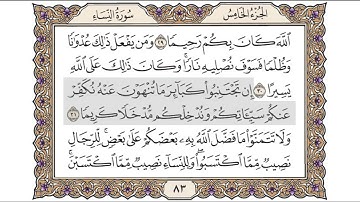 الجزء الخامس
سورة النساء
الله كان بكم رحيما ٢٩ ومن يفعل ذلك عدوانا
وظلما فسوف نصليه نارا وكان ذلك على الله
يسيرا ٣٠ إن تجتنبوا كبائر ما تنهون عنه نكفر
عنكم سيئاتكم وندخلكم مدخلا كريما ٣١
ولا تتمنوا ما فضل الله به بعضكم على بعض للرجال
نصيب مما اكتسبوا وللنساء نصيب مما اكتسبن
٨٣